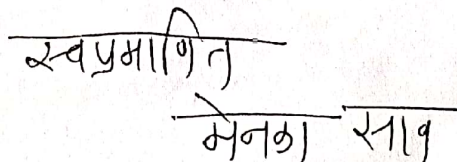 स्वप्रमाणित
मेनका साव